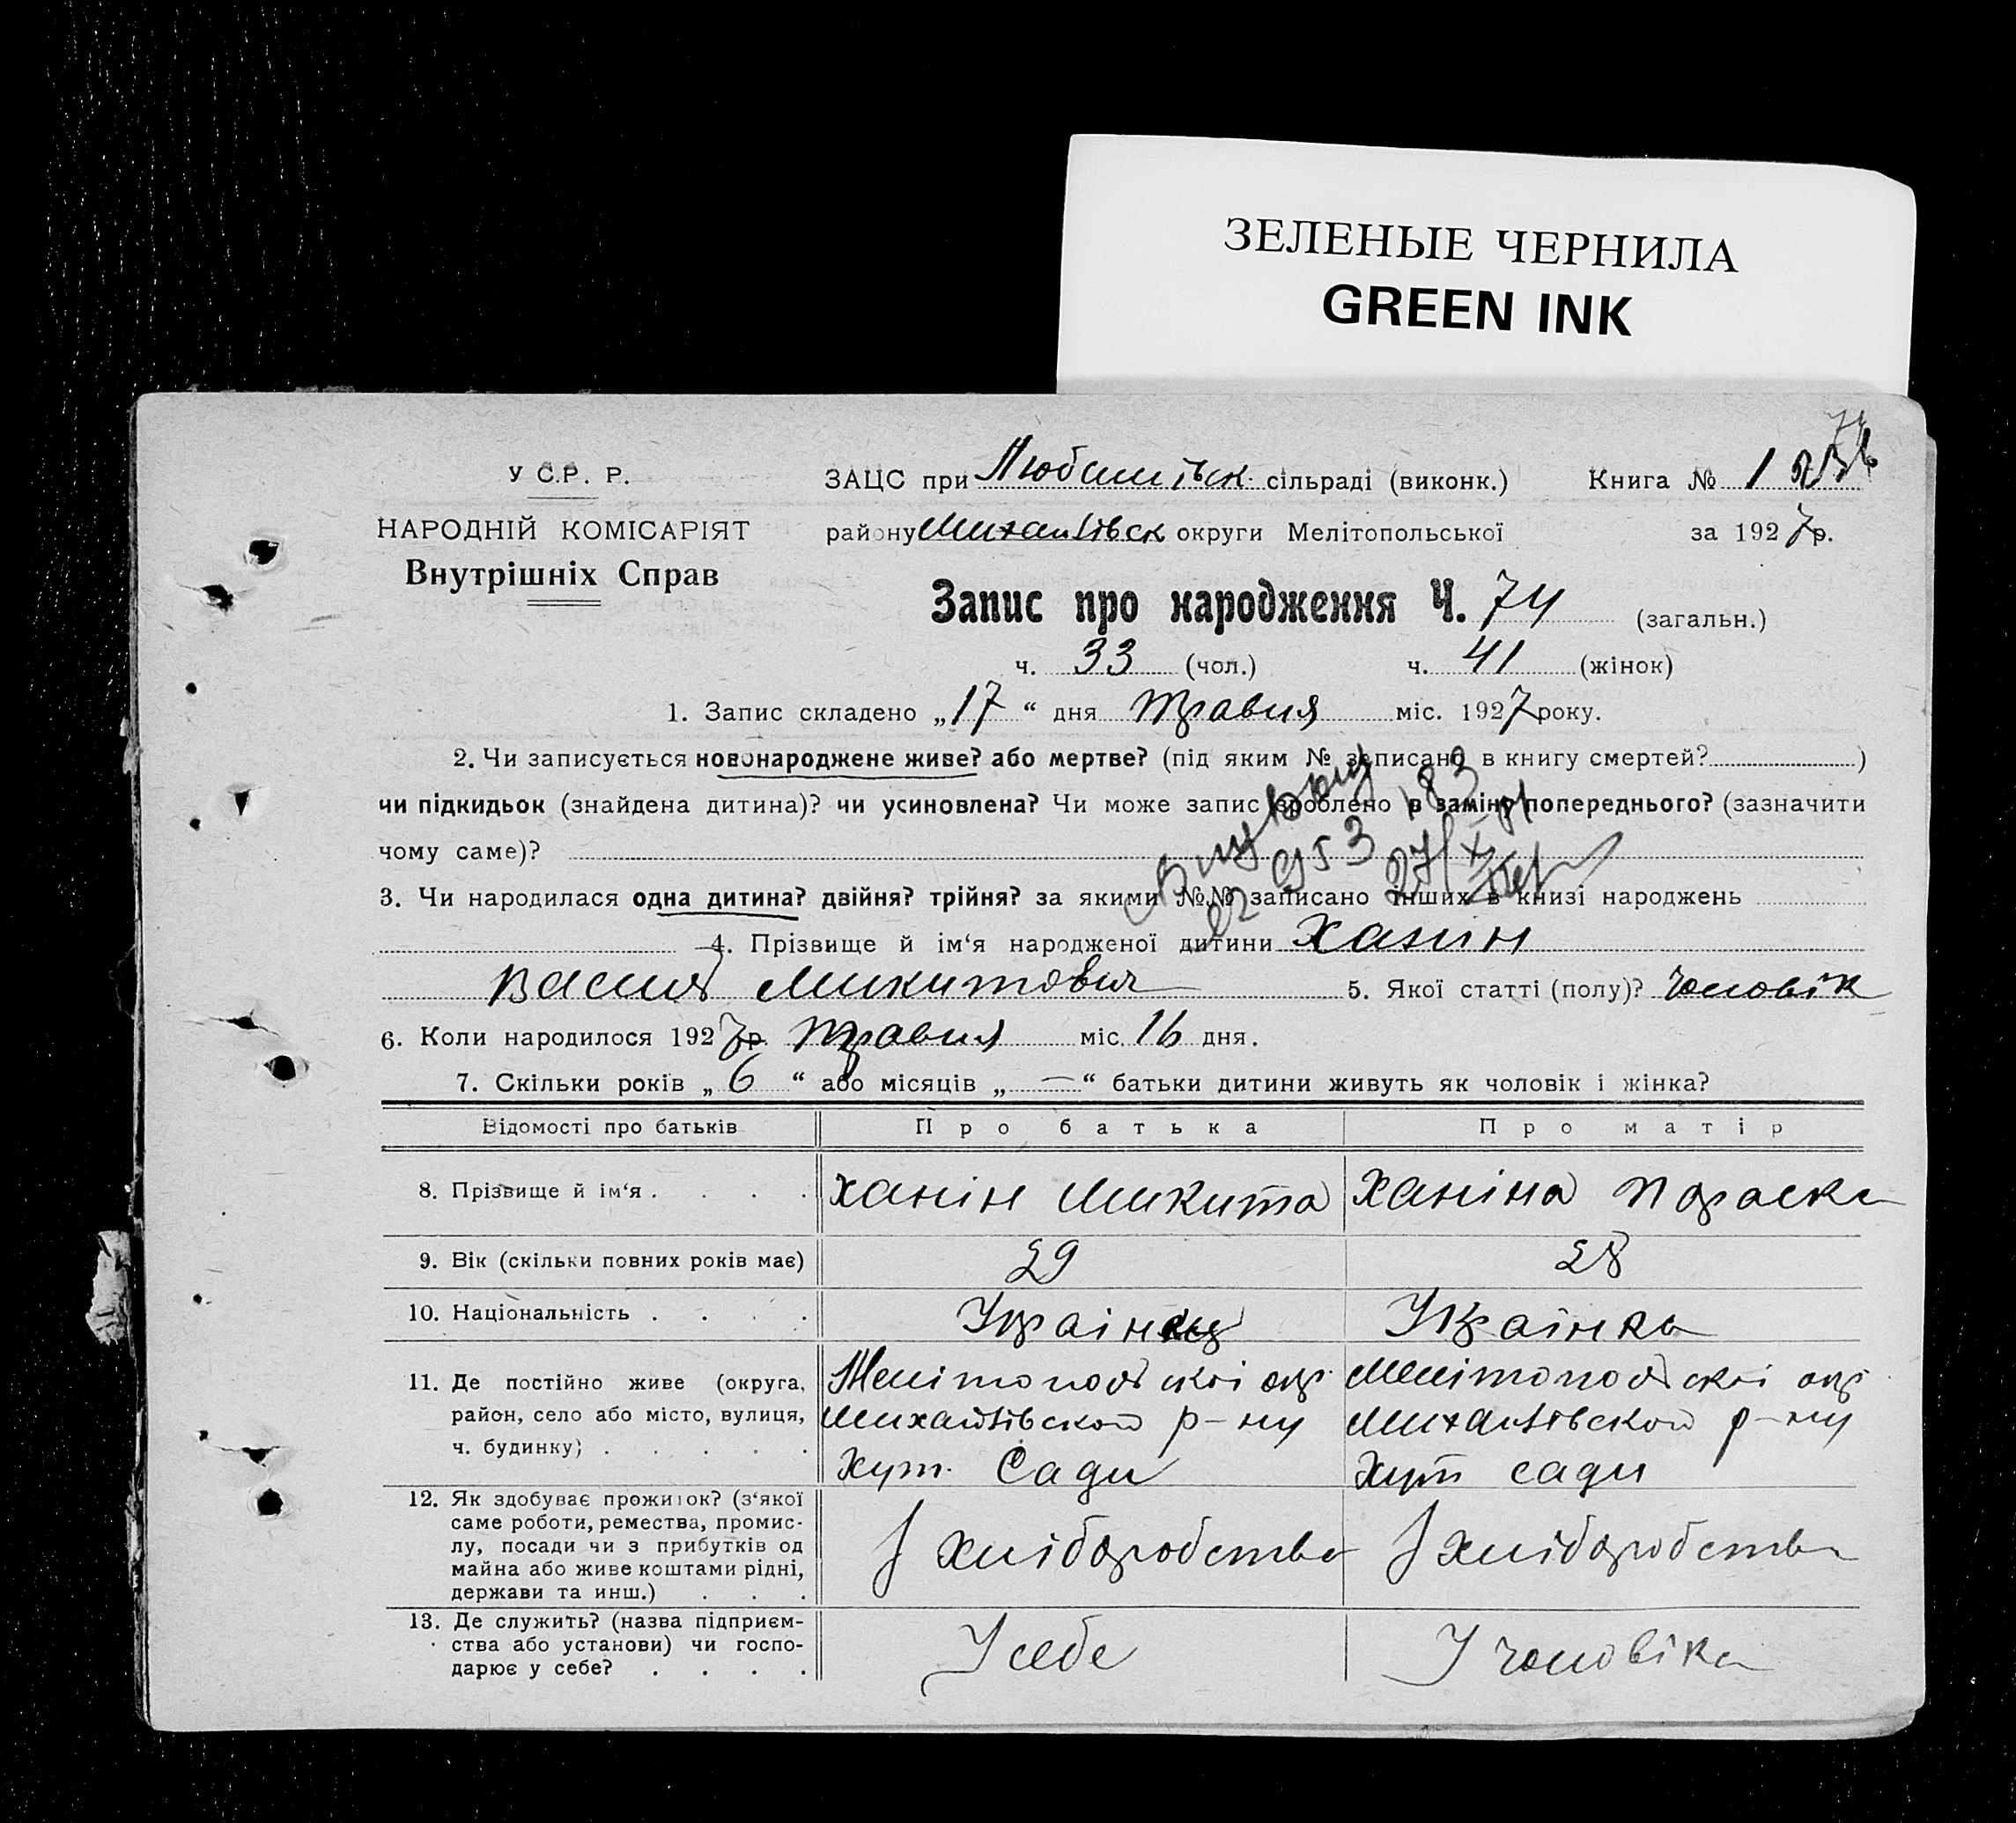 ЗЕЛЕНЫЕ ЧЕРНИЛА
GREEN INK
У С.Р. Р.
НАРОДНІЙ КОМІСАРІЯТ
Внутрішніх Справ
ЗАЦС при Любимівськ. сільраді (виконк.) Книга № 1
району Михайлівськ округи Мелітопольської за 1927р.
Запис про народження Ч. 74 (загальн.)
ч. 33 (чол.) ч. 41 (жінок)
1. Запис складено „17“ дня травня міс. 1927 року.
2. Чи записується новонароджене живе? або мертве? (під яким № записано в книгу смертей? )
чи підкидьок (знайдена дитина)? чи усиновлена? Чи може запис зроблено в заміну попереднього? (зазначити
чому саме)?
3. Чи народилася одна дитина? двійня? трійня? за якими №№ записано інших в книзі народжень
4. Прізвище й ім‘я народженої дитини Ханин
Василь Микитович 5. Якої статті (полу)? Чоловік
6. Коли народилося 1927р. травня міс. 16 дня.
7. Скільки років „ 6 “ або місяців „ — “ батьки дитини живуть як чоловік і жінка?
Відомості про батьків Про батька Про матір
8. Прізвище й ім‘я . . . . Ханін Микита Ханіна Параска
9. Вік (скільки повних років має) 29 28
10. Національність . . . . Українец Українка
11. Де постійно живе (округа, район, село або місто, вулиця, ч. будинку) . . . . .
Мелітопольскої окр. Михайлівского р-ну Хут. Сади
Мелітопольскої окр. Михайлівского р-ну Хут Сади
12. Як здобуває прожиток? (з‘якої саме роботи, ремества, промислу, посади чи з прибутків од майна або живе коштами рідні, держави та инш.) . . .
З хліборобства З хліборобства
13. Де служить? (назва підприємства або установи) чи господарює у себе? . . . .
У себе У чоловіка